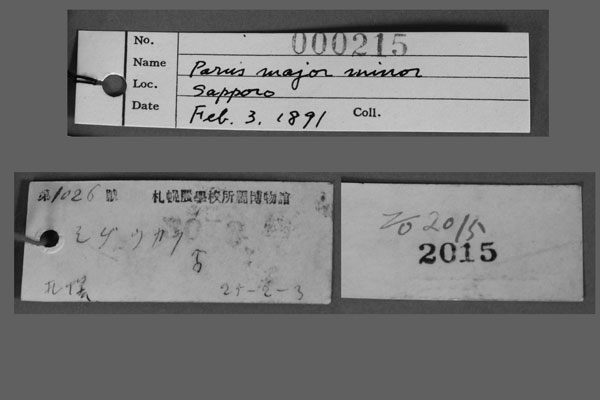 No. 000215
Name Parus major minor
Loc. Sapporo
Date Feb. 3, 1891 Coll.
第1026號 札幌農學校所屬博物館
シジウカラ
札幌 24-2-3
2015
2015